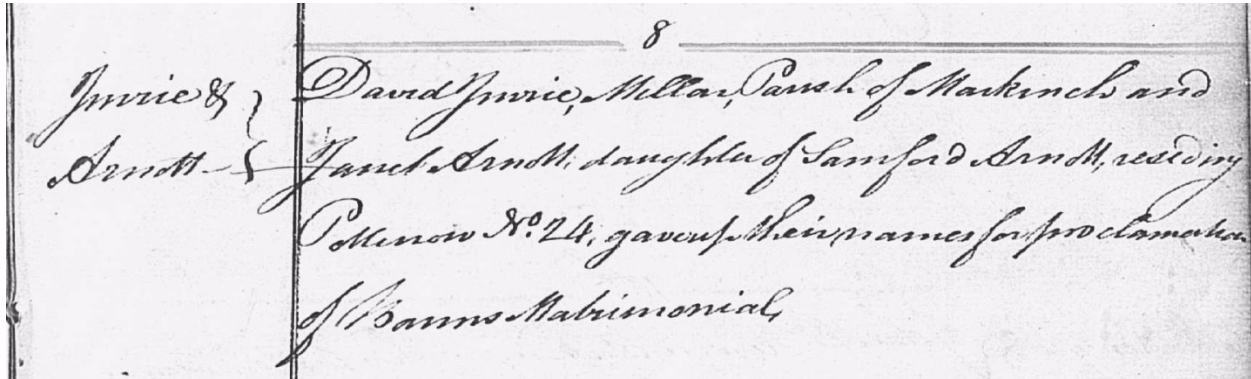 8
Imrie & David Imrie, Millar, Parish of Markinch and
Arnott Janet Arnott, daughter of Samford Arnott, residing
Potterrow No. 24, gave up their names for proclamation
of Banns Matrimonial,